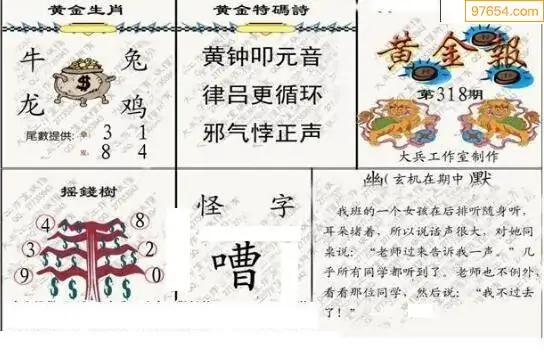 97654.com
黄金生肖
牛 兔
龙 鸡
尾數提供: 3 1
8 4
黄金特碼詩
黄钟叩元音
律吕更循环
邪气悖正声
黄金報
第318期
大兵工作室制作
摇錢樹
4 8
3 2
9 0
怪字
嘈
幽(玄机在期中)默
我班的一个女孩在后排听随身听，
耳朵堵着，所以说话声很大，对她同
桌说：“老师过来告诉我一声。”几
乎所有同学都听到了。老师也不例外，
看看那位同学，然后说：“我不过去
了！”